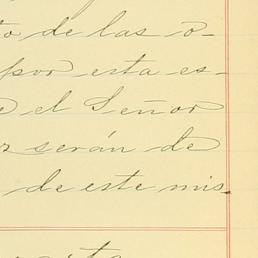 to de las o-
por esta es-
e el Señor
r serán de
de este mis-